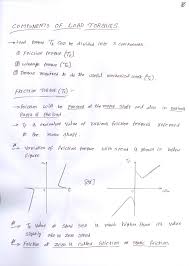 COMPONENTS OF LOAD TORQUES
→ Load torque TL can be divided into 3 components
① Friction torque (TF)
② Windage torque (TW)
③ Torque required to do the useful mechanical work (TL)
FRICTION TORQUE (TF) -
→ Friction will be present at the motor shaft and also in various
parts of the load
→ TF is equivalent value of various friction torques referred
to the motor shaft
→ Variation of friction torque with speed is shown in below
figure
(or)
→ TF value at zero speed is much higher than its value
slightly above zero speed
→ Friction at zero is called stiction or static friction